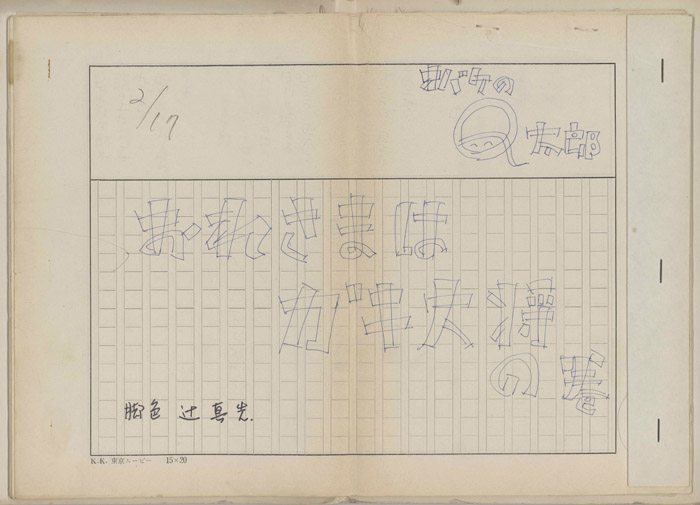 オバケの
Q太郎
2/17
おれさまは
ガキ大将
の巻
脚色 辻真先.
K.K. 東京ムービー 15×20